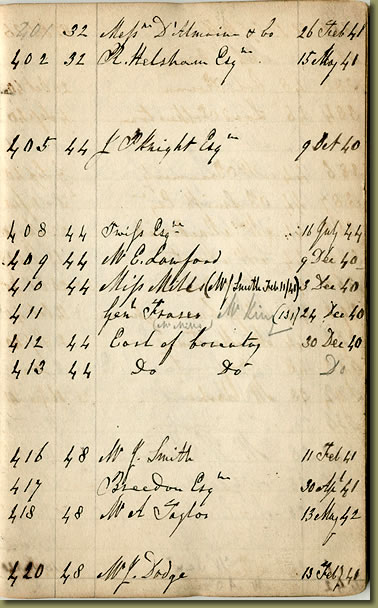 401 32 Messrs D'Almaine & Co 26 Feb 41
402 32 R. Helsham Esqre 15 May 41
405 44 J P Knight Esqre 9 Oct 40
408 44 Twiss Esqre 16 July 44
409 44 Mr E. Lanford 9 Dec 40
410 44 Miss Mills (Mr J Smith Feb 11/41) 3 Dec 40
411 Genl Fraser Mr King (131) 24 Dec 40
412 44 Earl of Coventry 30 Dec 40
413 44 Do Do Do
416 48 Mr J. Smith 11 Feb 41
417 Breedon Esqre 30 Apl 41
418 48 Mr A Taylor 13 May 42
420 48 Mr J. Dodge 13 Feb 40